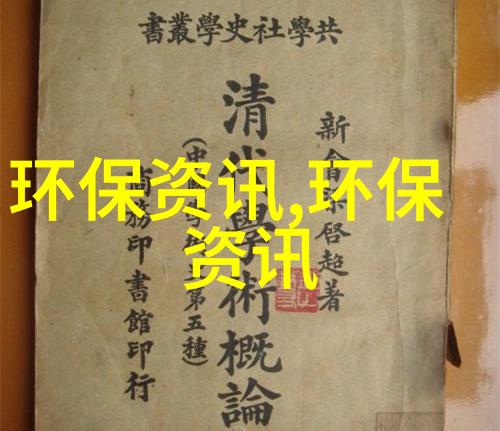 共學社史學叢書
新會梁啓超著
清代學術概論
(中國學術史第五種)
商務印書館印行
环保资讯,环保
资讯